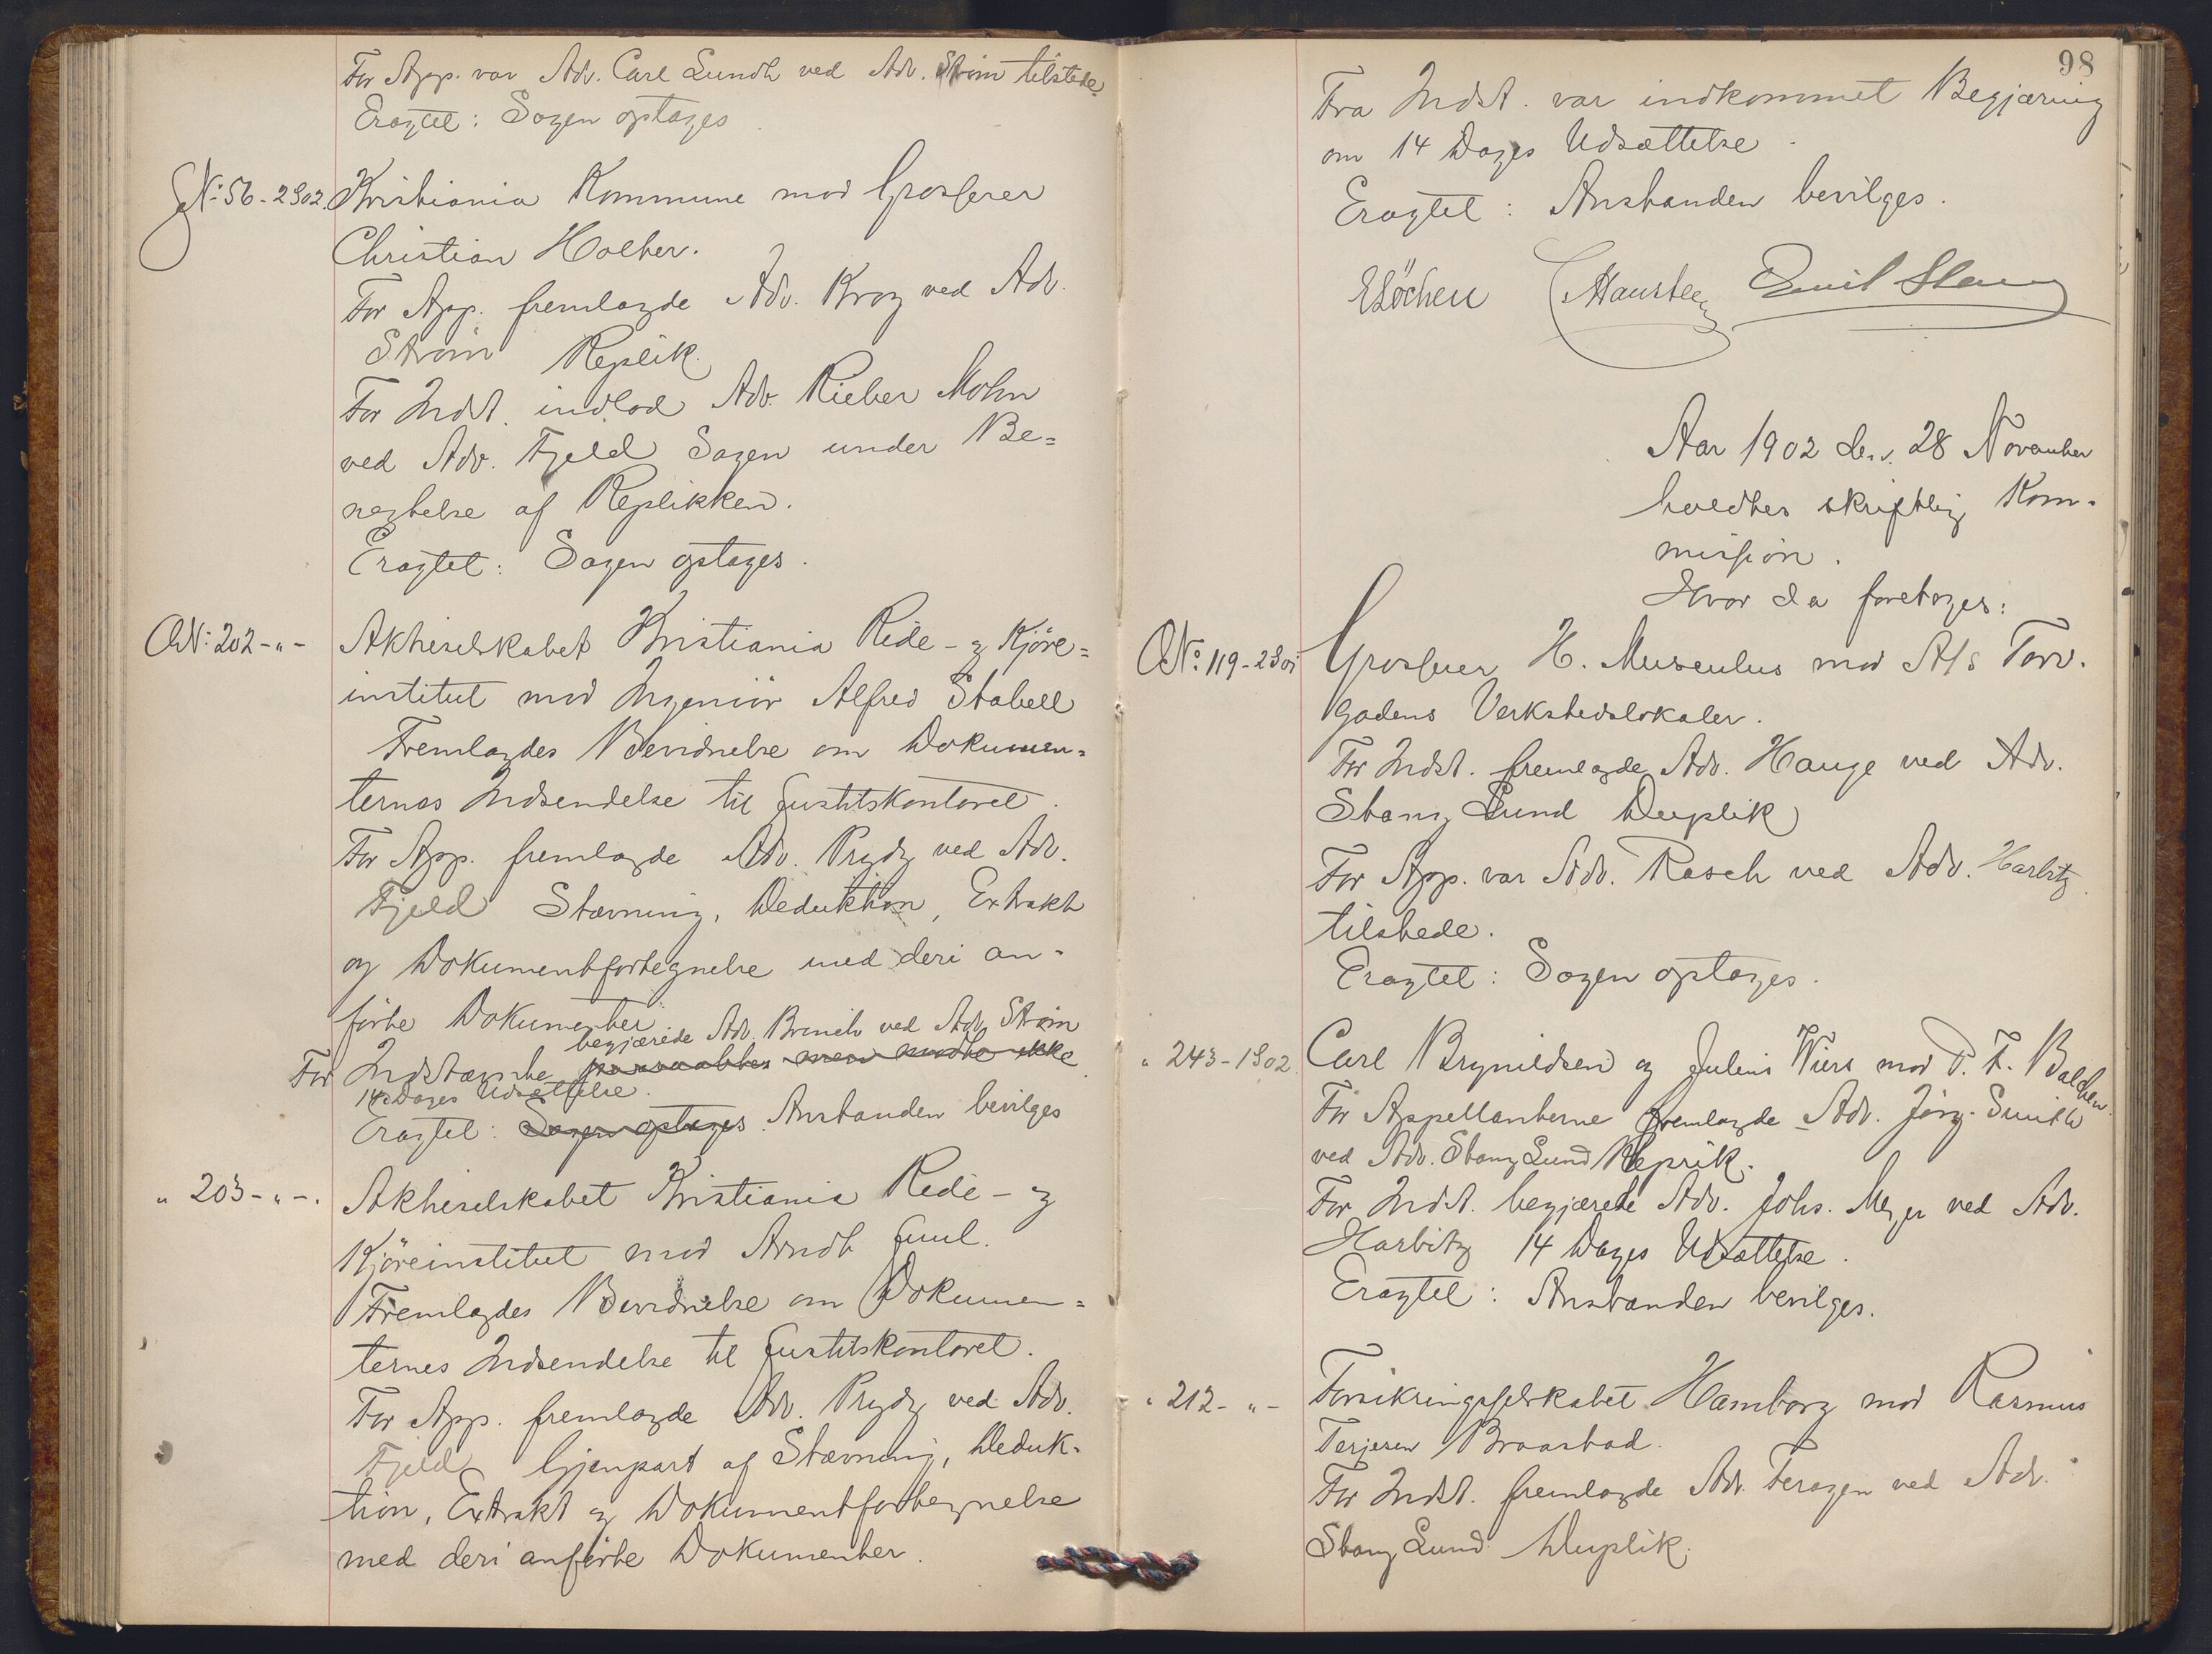 For App. var Adv. Carl Lundh ved Adv. Ström tilstede
Eragtet: Sagen optages
No 56-2902. Kristiania Kommune mod Grosserer
Christian Holter.
For App. fremlagde Adv. Krog ved Adv.
Ström Replik.
For Indst. indlod Adv. Rieber Mohn
ved Adv. Fjeld Sagen under Be=
negtelse af Replikken.
Eragtet: Sagen optages.
No: 202-"- Aktieselskabet Kristiania Ride- og Kjöre=
institut mod Ingeniör Alfred Stabell
Fremlagdes Bevidnelse om Dokumen=
ternes Indsendelse til Justitskontoret.
For App. fremlagde Adv. Prydz ved Adv.
Fjeld Stævning, Deduktion, Extrakt
og Dokumentfortegnelse med deri an-
förte Dokumenter.
begjærede Adv. Bruch ved Adv. Ström
For Indstævnte paaraabtes men mödte ikke
14 Dages Udsættelse.
Eragtet: Sagen optages. Anstanden bevilges
" 203-"-. Aktieselskabet Kristiania Ride- og
Kjöreinstitut mod Arndt Juul.
Fremlagdes Bevidnelse om Dokumen=
ternes Indsendelse til Justitskontoret.
For App. fremlagde Adv. Prydz ved Adv.
Fjeld Gjenpart af Stævning, Deduk-
tion, Extrakt og Dokumentfortegnelse
med deri anförte Dokumenter.
98
Fra Indst. var indkommet Begjæring
om 14 Dages Udsættelse.
Eragtet: Anstanden bevilges.
ELöchen CHansteen Emil Stang
Aar 1902 den 28 November
holdtes skriftlig Kom-
mission.
Hvor da foretoges:
No: 119-2901 Grosserer H. Musculus mod A/s Torv.
gadens Verkstedslokaler.
For Indst. fremlagde Adv. Hauge ved Adv.
Stang Lund Duplik
For App. var Adv. Rasch ved Adv. Harbitz
tilstede.
Eragtet: Sagen optages.
" 243-1902. Carl Brynildsen og Julius Wiers mod P. F. Balchen.
For Appellanterne fremlagde Adv. Jörg. Smith
ved Adv. Stang Lund Replik.
For Indst. begjærede Adv. Johs. Meyer ved Adv.
Harbitz 14 Dages Udsættelse.
Eragtet: Anstanden bevilges.
" 212-"- Forsikringsselskabet Hamborg mod Rasmus
Terjesen Braastad.
For Indst. fremlagde Adv. Feragen ved Adv.
Stang Lund Duplik.